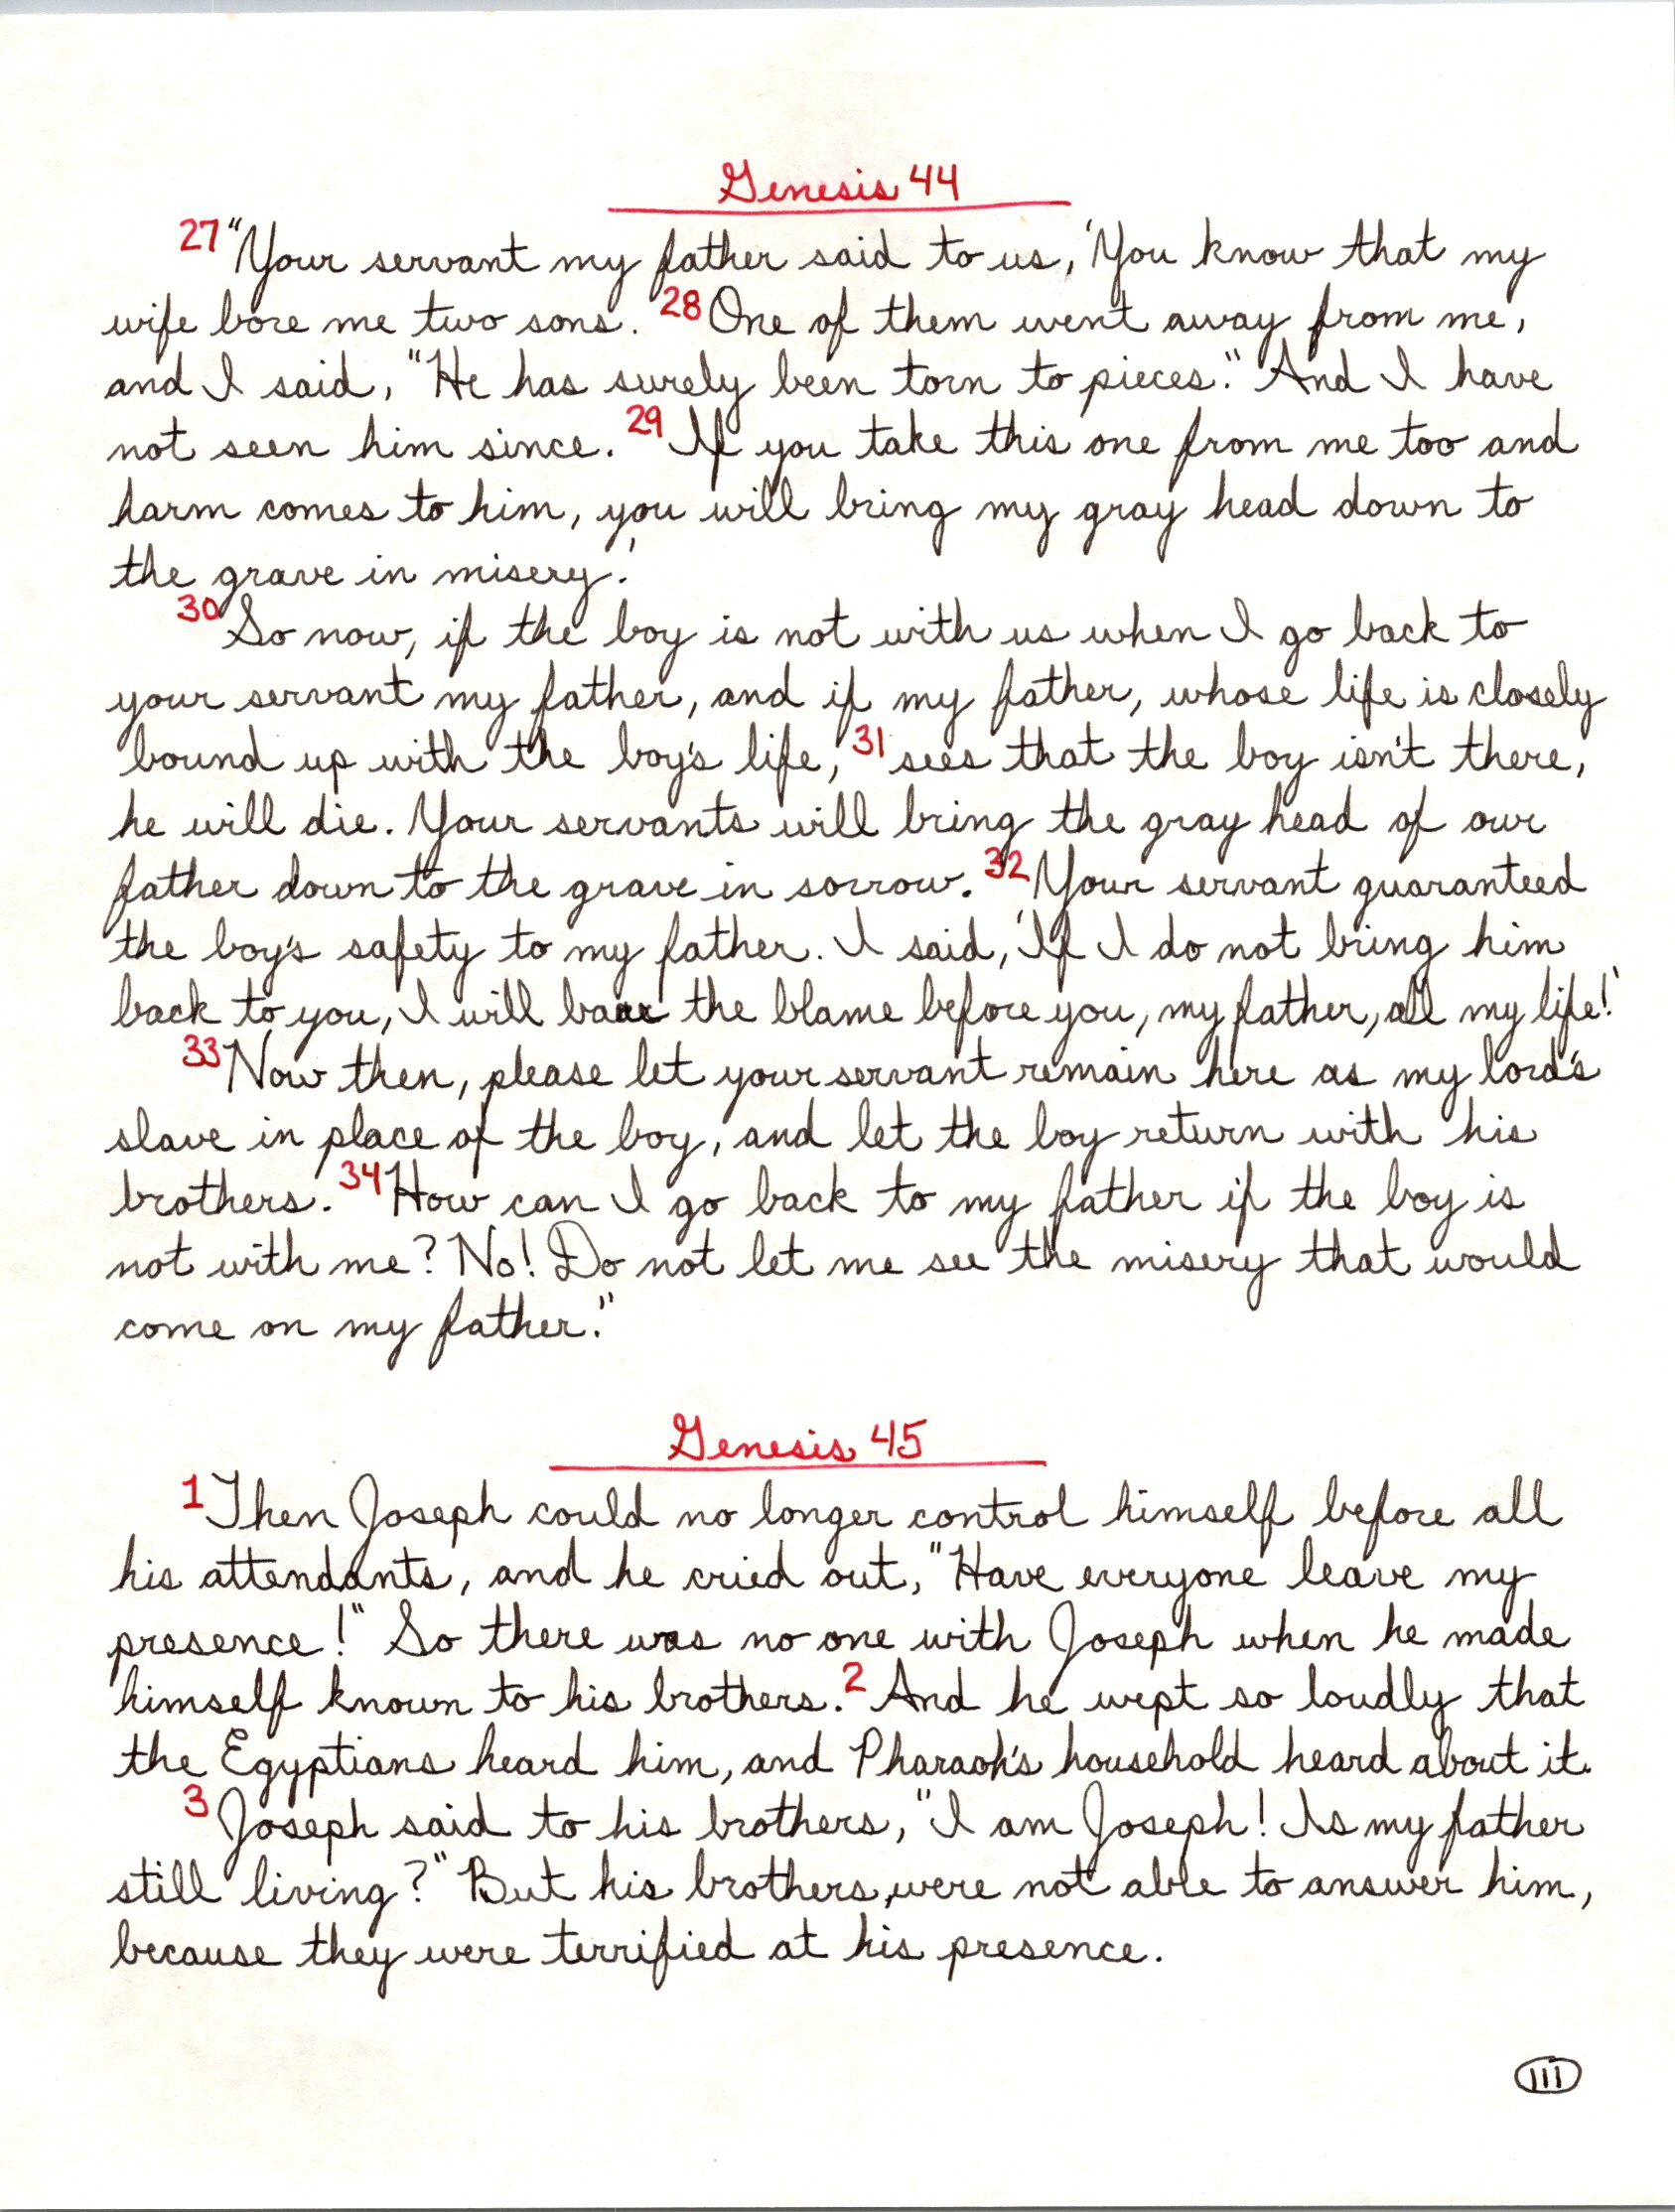 Genesis 44
27 "Your servant my father said to us, 'You know that my
wife bore me two sons. 28 One of them went away from me,
and I said, "He has surely been torn to pieces." And I have
not seen him since. 29 If you take this one from me too and
harm comes to him, you will bring my gray head down to
the grave in misery.'
30 So now, if the boy is not with us when I go back to
your servant my father, and if my father, whose life is closely
bound up with the boy's life, 31 sees that the boy isn't there,
he will die. Your servants will bring the gray head of our
father down to the grave in sorrow. 32 Your servant guaranteed
the boy's safety to my father. I said, 'If I do not bring him
back to you, I will bear the blame before you, my father, all my life!'
33 Now then, please let your servant remain here as my lord's
slave in place of the boy, and let the boy return with his
brothers. 34 How can I go back to my father if the boy is
not with me? No! Do not let me see the misery that would
come on my father."
Genesis 45
1 Then Joseph could no longer control himself before all
his attendants, and he cried out, "Have everyone leave my
presence!" So there was no one with Joseph when he made
himself known to his brothers. 2 And he wept so loudly that
the Egyptians heard him, and Pharaoh's household heard about it.
3 Joseph said to his brothers, "I am Joseph! Is my father
still living?" But his brothers were not able to answer him,
because they were terrified at his presence.
111